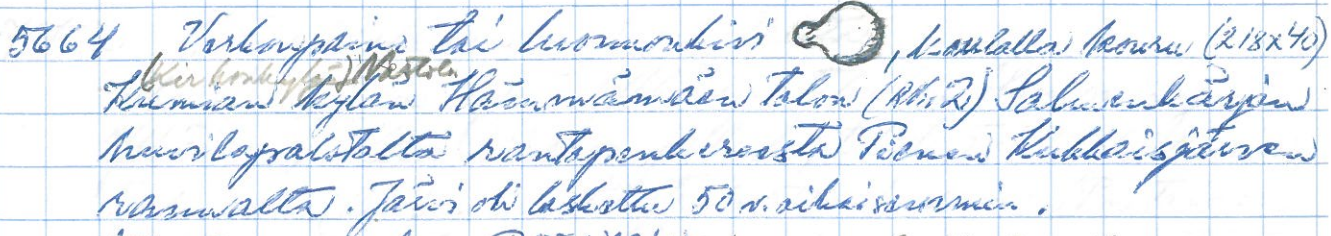 5664 Verkonpaino tai luonnonkivi , kaulalla kouru (218x40)
(Kirkonkylä) Nastola
kylän Hämmämäen talon (RN:2) Salmenkärjän
rantapenkereestä Pienen Kukkaisjärven
rannalta. Järvi oli laskettu 50 v. aikaisemmin.